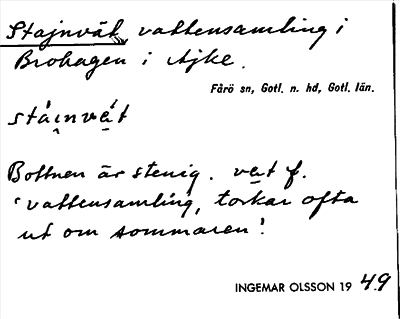 Stajnvät, vattensamling i
Brohagen i Ajke.
Fårö sn, Gotl. n. hd, Gotl. län.
stáinvät
Bottnen är stenig. vät f.
'vattensamling, torkar ofta
ut om sommaren'.
INGEMAR OLSSON 1949